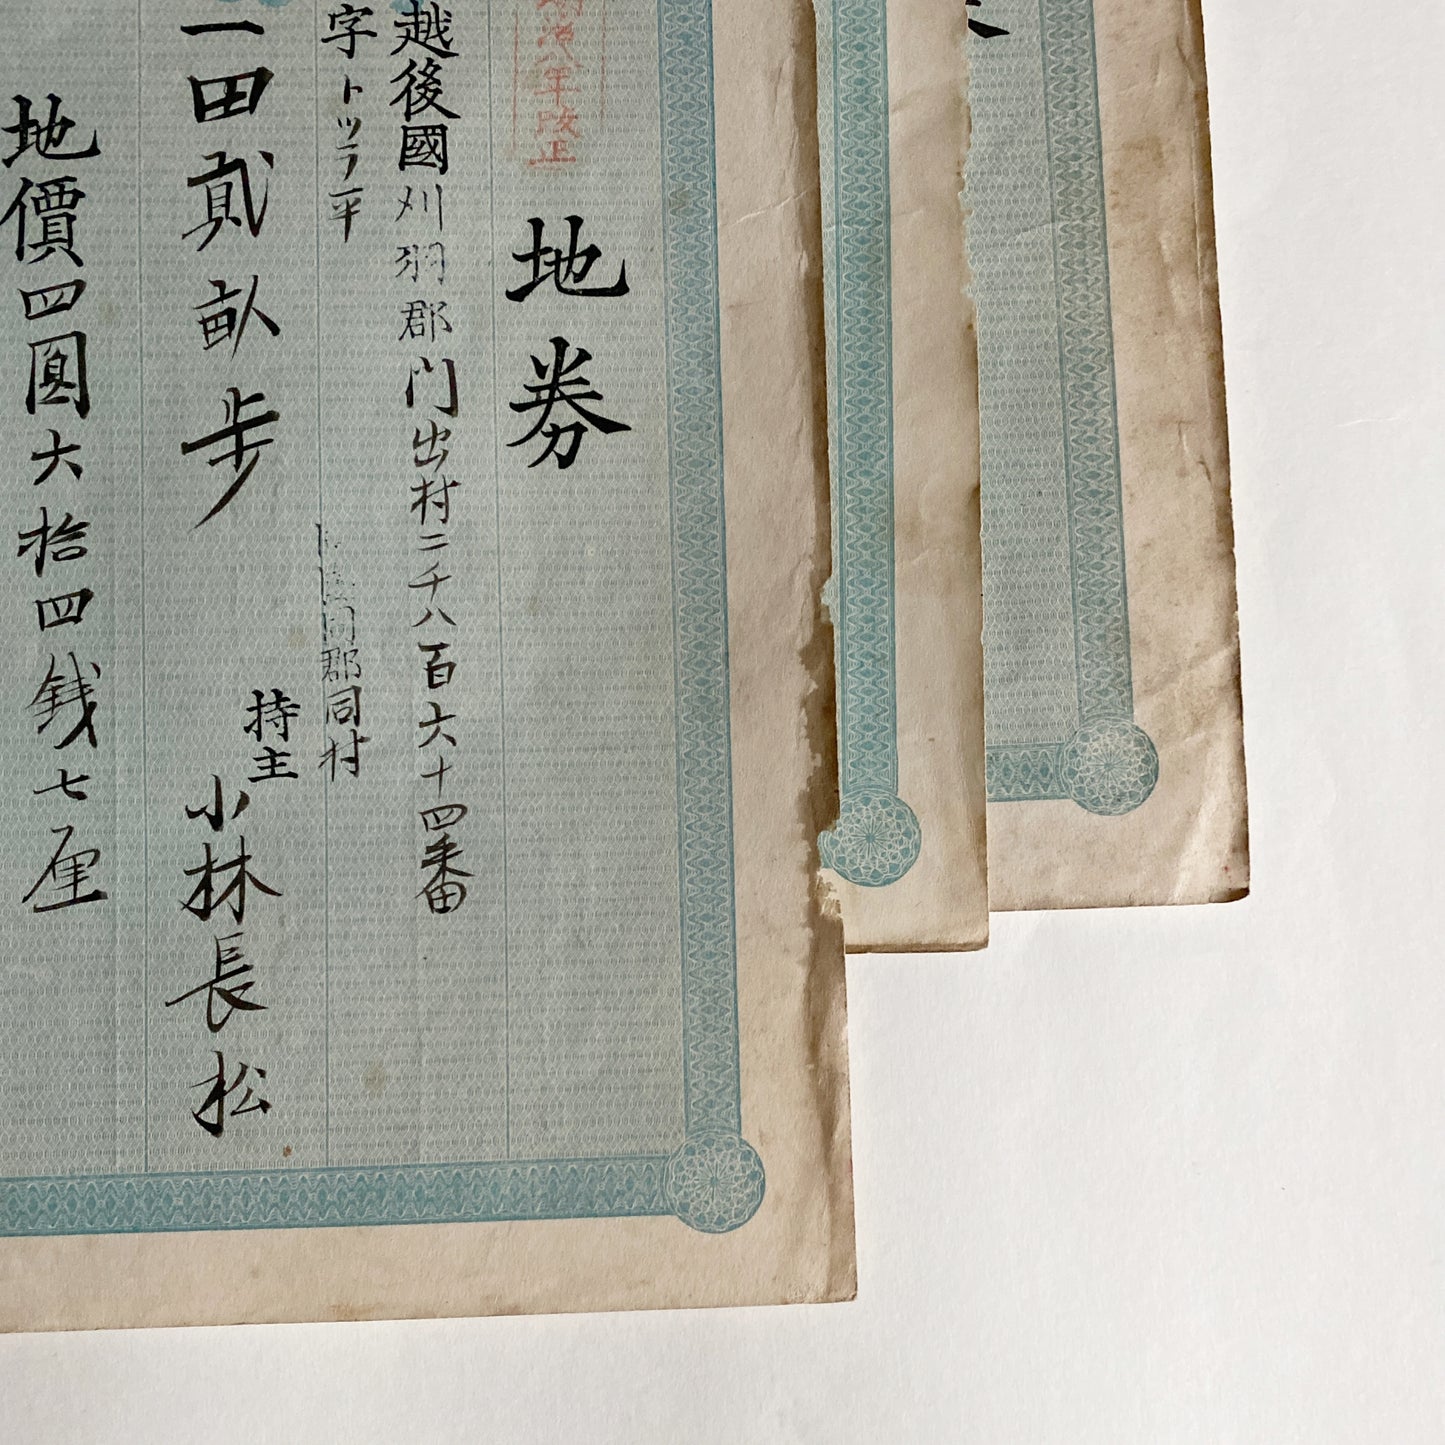 治八年改正
地券
越後國刈羽郡門出村二千八百六十四番
字トツラ平
同郡同村
一田貳畝歩
持主
小林長松
地價四圓六拾四銭七厘